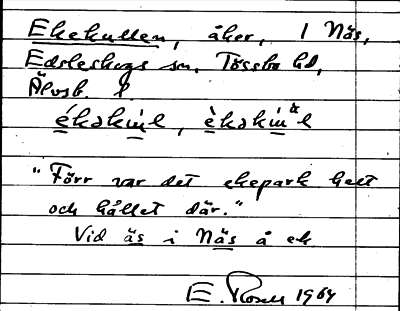 Ekekullen, åker, 1 Näs,
Edsleskogs sn. Tössbo hd,
Älvsb. l.
"Förr var det ekepark helt
och hållet där."
Vid äs i Näs å ek
E. 1964